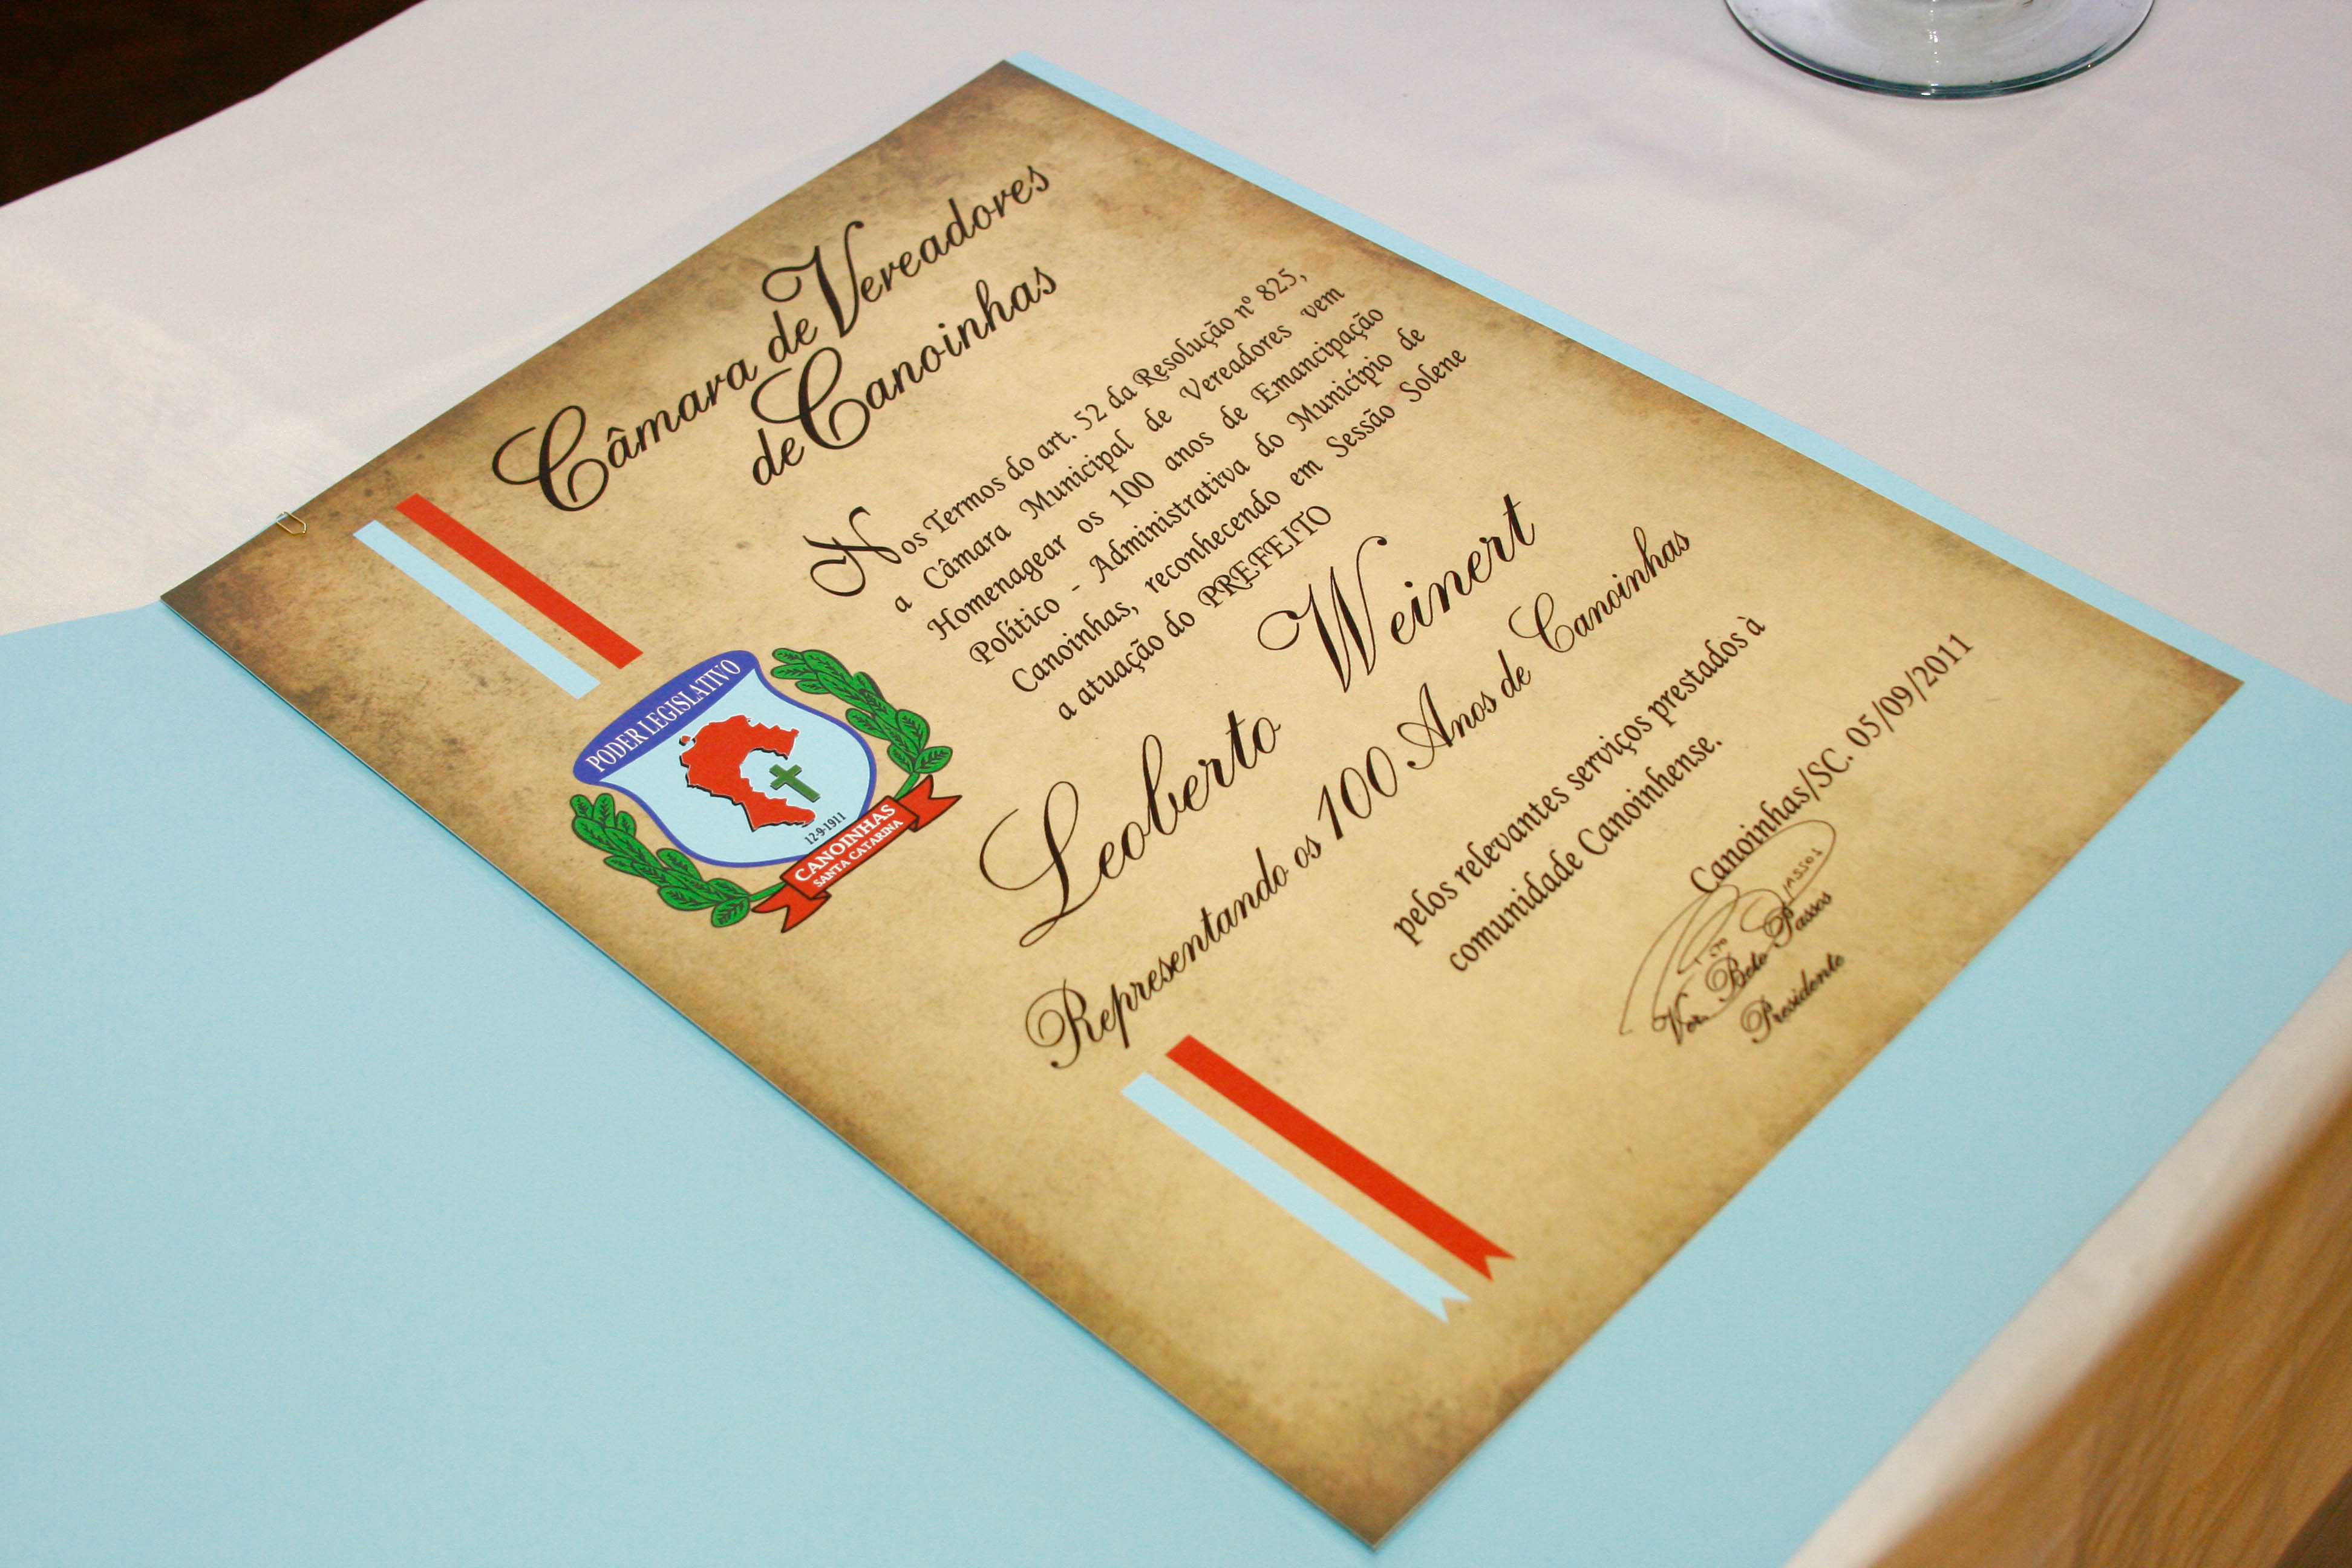 Câmara de Vereadores
de Canoinhas
Nos Termos do art. 52 da Resolução nº 825,
a Câmara Municipal de Vereadores vem
Homenagear os 100 anos de Emancipação
Político - Administrativa do Município de
Canoinhas, reconhecendo em Sessão Solene
a atuação do PREFEITO
Leoberto Weinert
Representando os 100 Anos de Canoinhas
pelos relevantes serviços prestados à
comunidade Canoinhense.
Canoinhas/SC. 05/09/2011
Ver. Beto Passos
Presidente
PODER LEGISLATIVO
12-9-1911
CANOINHAS
SANTA CATARINA